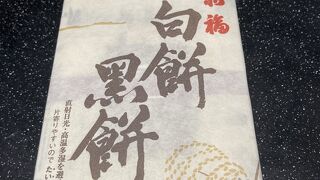 お福
白餅
黑餅
直射日光・高温多湿を避
片寄りやすいので たい